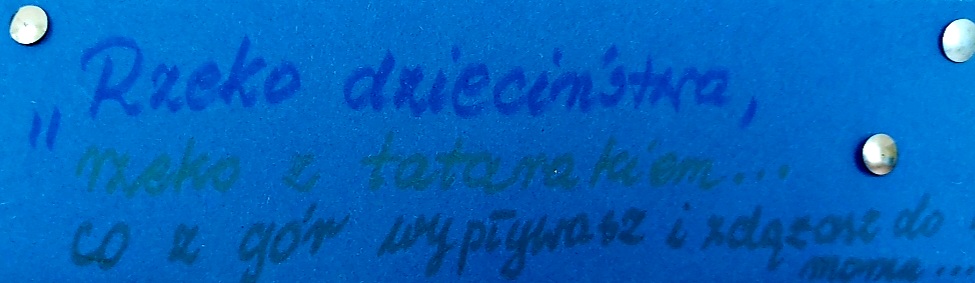 „Rzeko dzieciństwa,
rzeko z tatarakiem...
co z gór wypływasz i zdążasz do
morza...